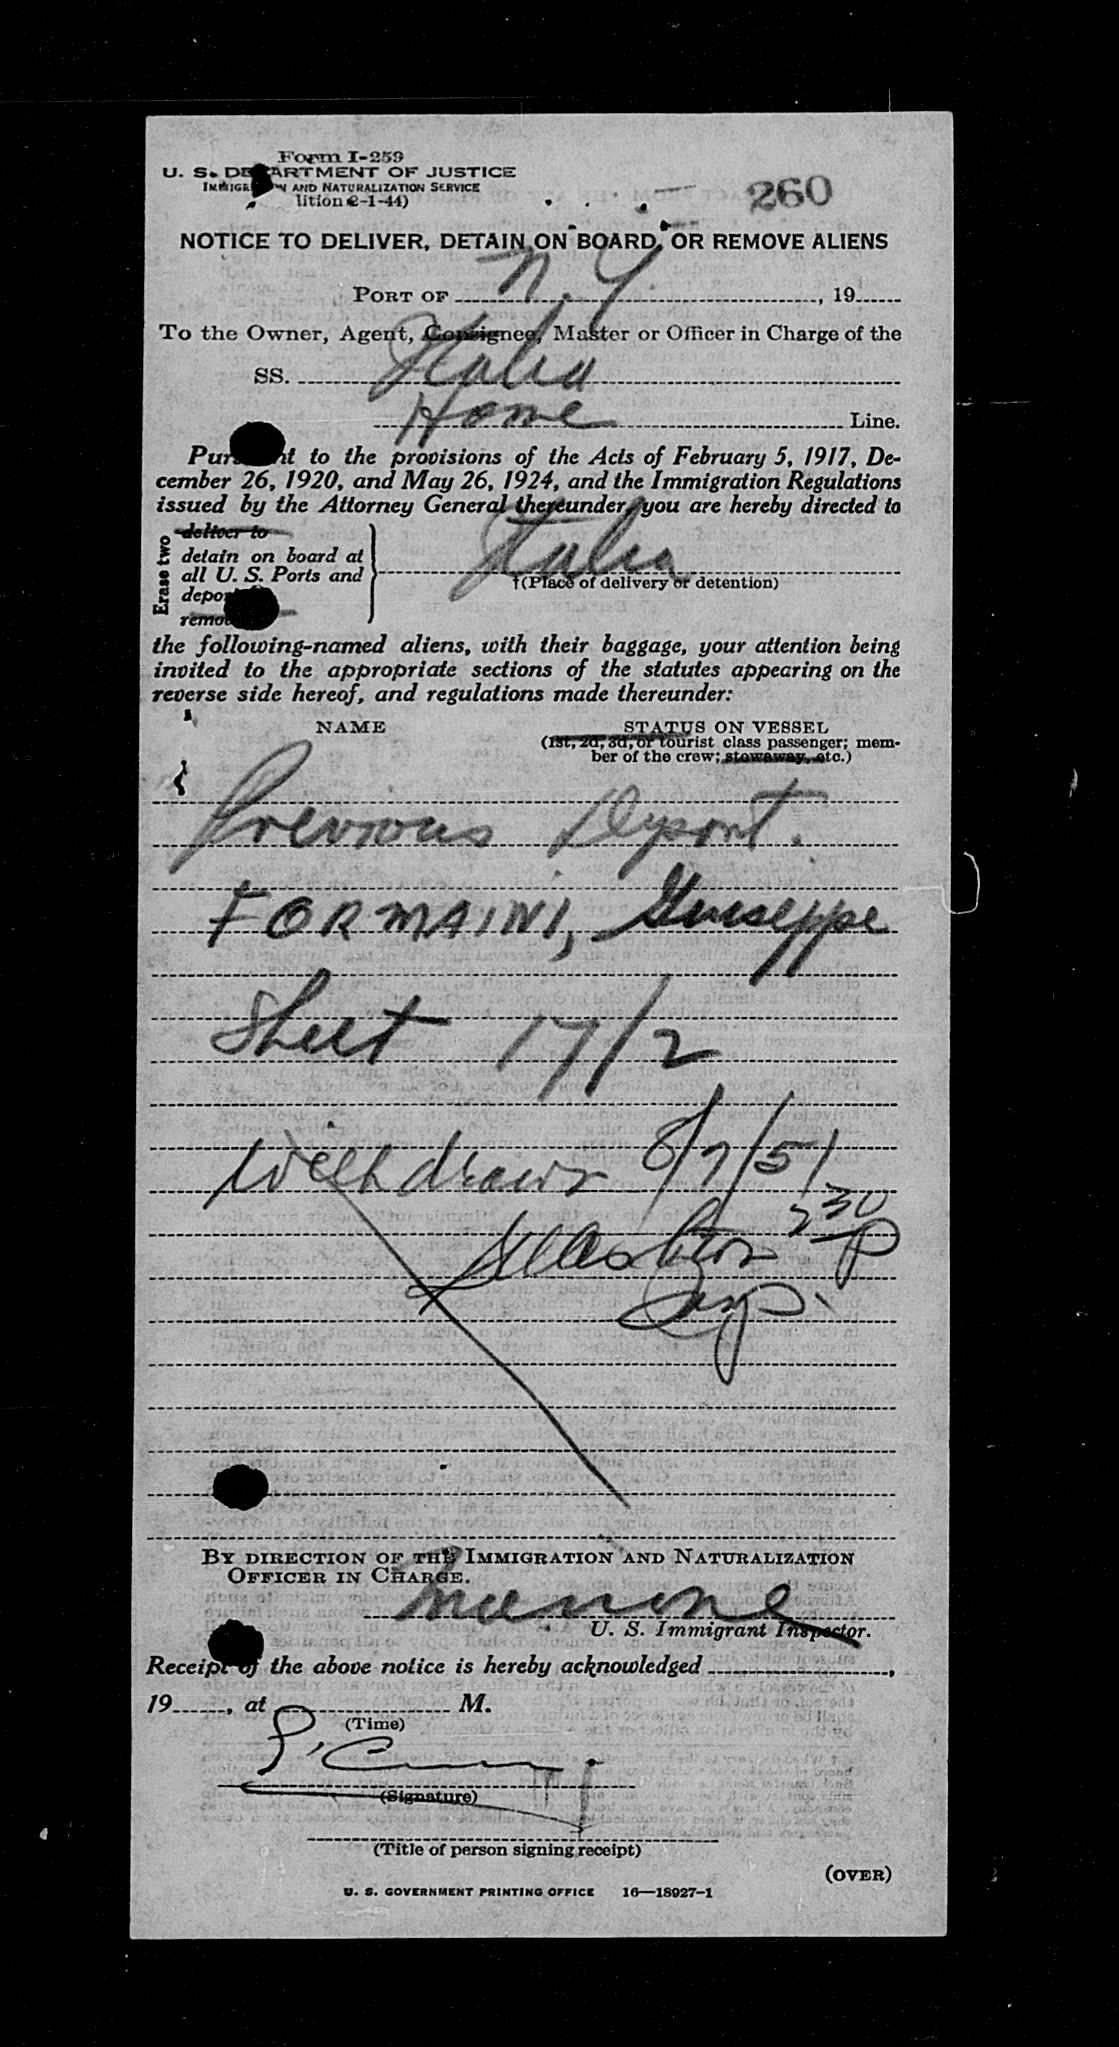 Form I-259
U. S. DEPARTMENT OF JUSTICE
IMMIGRATION AND NATURALIZATION SERVICE
ition 2-1-44)
260
NOTICE TO DELIVER, DETAIN ON BOARD, OR REMOVE ALIENS
PORT OF N. Y. , 19
To the Owner, Agent, Consignee, Master or Officer in Charge of the
SS. Italia
Home Line.
Pursuant to the provisions of the Acts of February 5, 1917, De-
cember 26, 1920, and May 26, 1924, and the Immigration Regulations
issued by the Attorney General thereunder, you are hereby directed to
Erase two
deliver to
detain on board at
all U. S. Ports and
deport
remove
Italia
†(Place of delivery or detention)
the following-named aliens, with their baggage, your attention being
invited to the appropriate sections of the statutes appearing on the
reverse side hereof, and regulations made thereunder:
NAME STATUS ON VESSEL
(1st, 2d, 3d, or tourist class passenger; mem-
ber of the crew; stowaway, etc.)
Previous Deport.
FORMAINI, Giuseppe
Sheet 17/2
Withdrawn 8/7/51
2 30 P
Insp.
BY DIRECTION OF THE IMMIGRATION AND NATURALIZATION
OFFICER IN CHARGE.
U. S. Immigrant Inspector.
Receipt of the above notice is hereby acknowledged ,
19 , at M.
(Time)
(Signature)
(Title of person signing receipt)
(OVER)
U. S. GOVERNMENT PRINTING OFFICE 16—18927-1